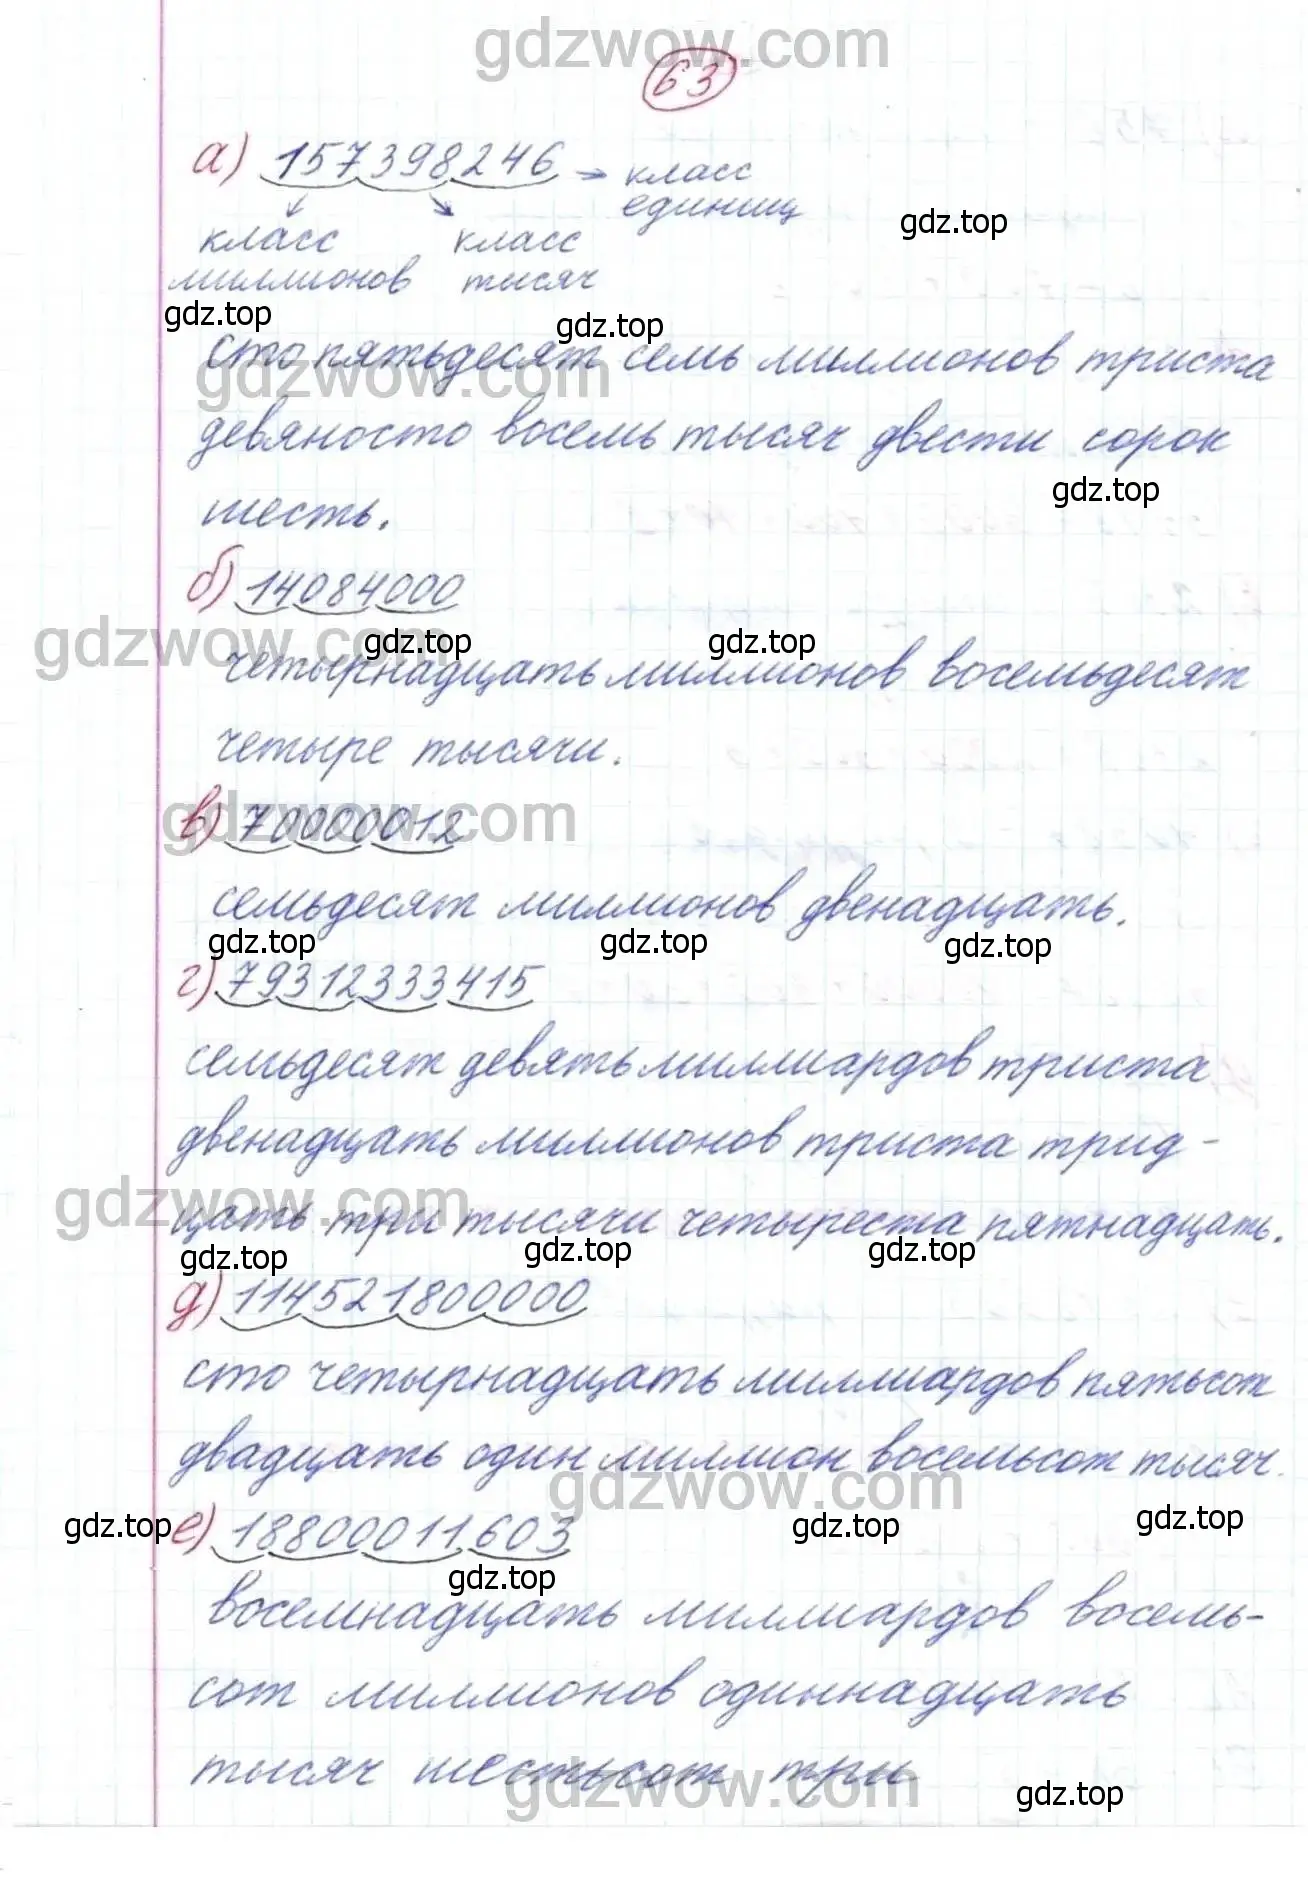 gdzwow.com
63
а) 157398246 → класс единиц
gdz.top
класс миллионов
класс тысяч
gdz.top
gdz.top
сто пятьдесят семь миллионов триста
gdzwow.com
девяносто восемь тысяч двести сорок
gdz.top
шесть.
б) 14084000
gdzwow.com
gdz.top
gdz.top
четырнадцать миллионов восемьдесят
четыре тысячи.
в) 70000012
gdzwow.com
семьдесят миллионов двенадцать.
gdz.top
gdz.top
gdz.top
г) 79312333415
семьдесят девять миллиардов триста
двенадцать миллионов триста трид-
gdzwow.com
цать три тысячи четыреста пятнадцать.
gdz.top
gdz.top
gdz.top
д) 114521800000
сто четырнадцать миллиардов пятьсот
двадцать один миллион восемьсот тысяч.
gdzwow.com
gdz.top
е) 18800011603
gdz.top
gdz.top
gdz.top
восемнадцать миллиардов восемь-
сот миллионов одиннадцать
тысяч шестьсот три
gdzwow.com
gdz.top